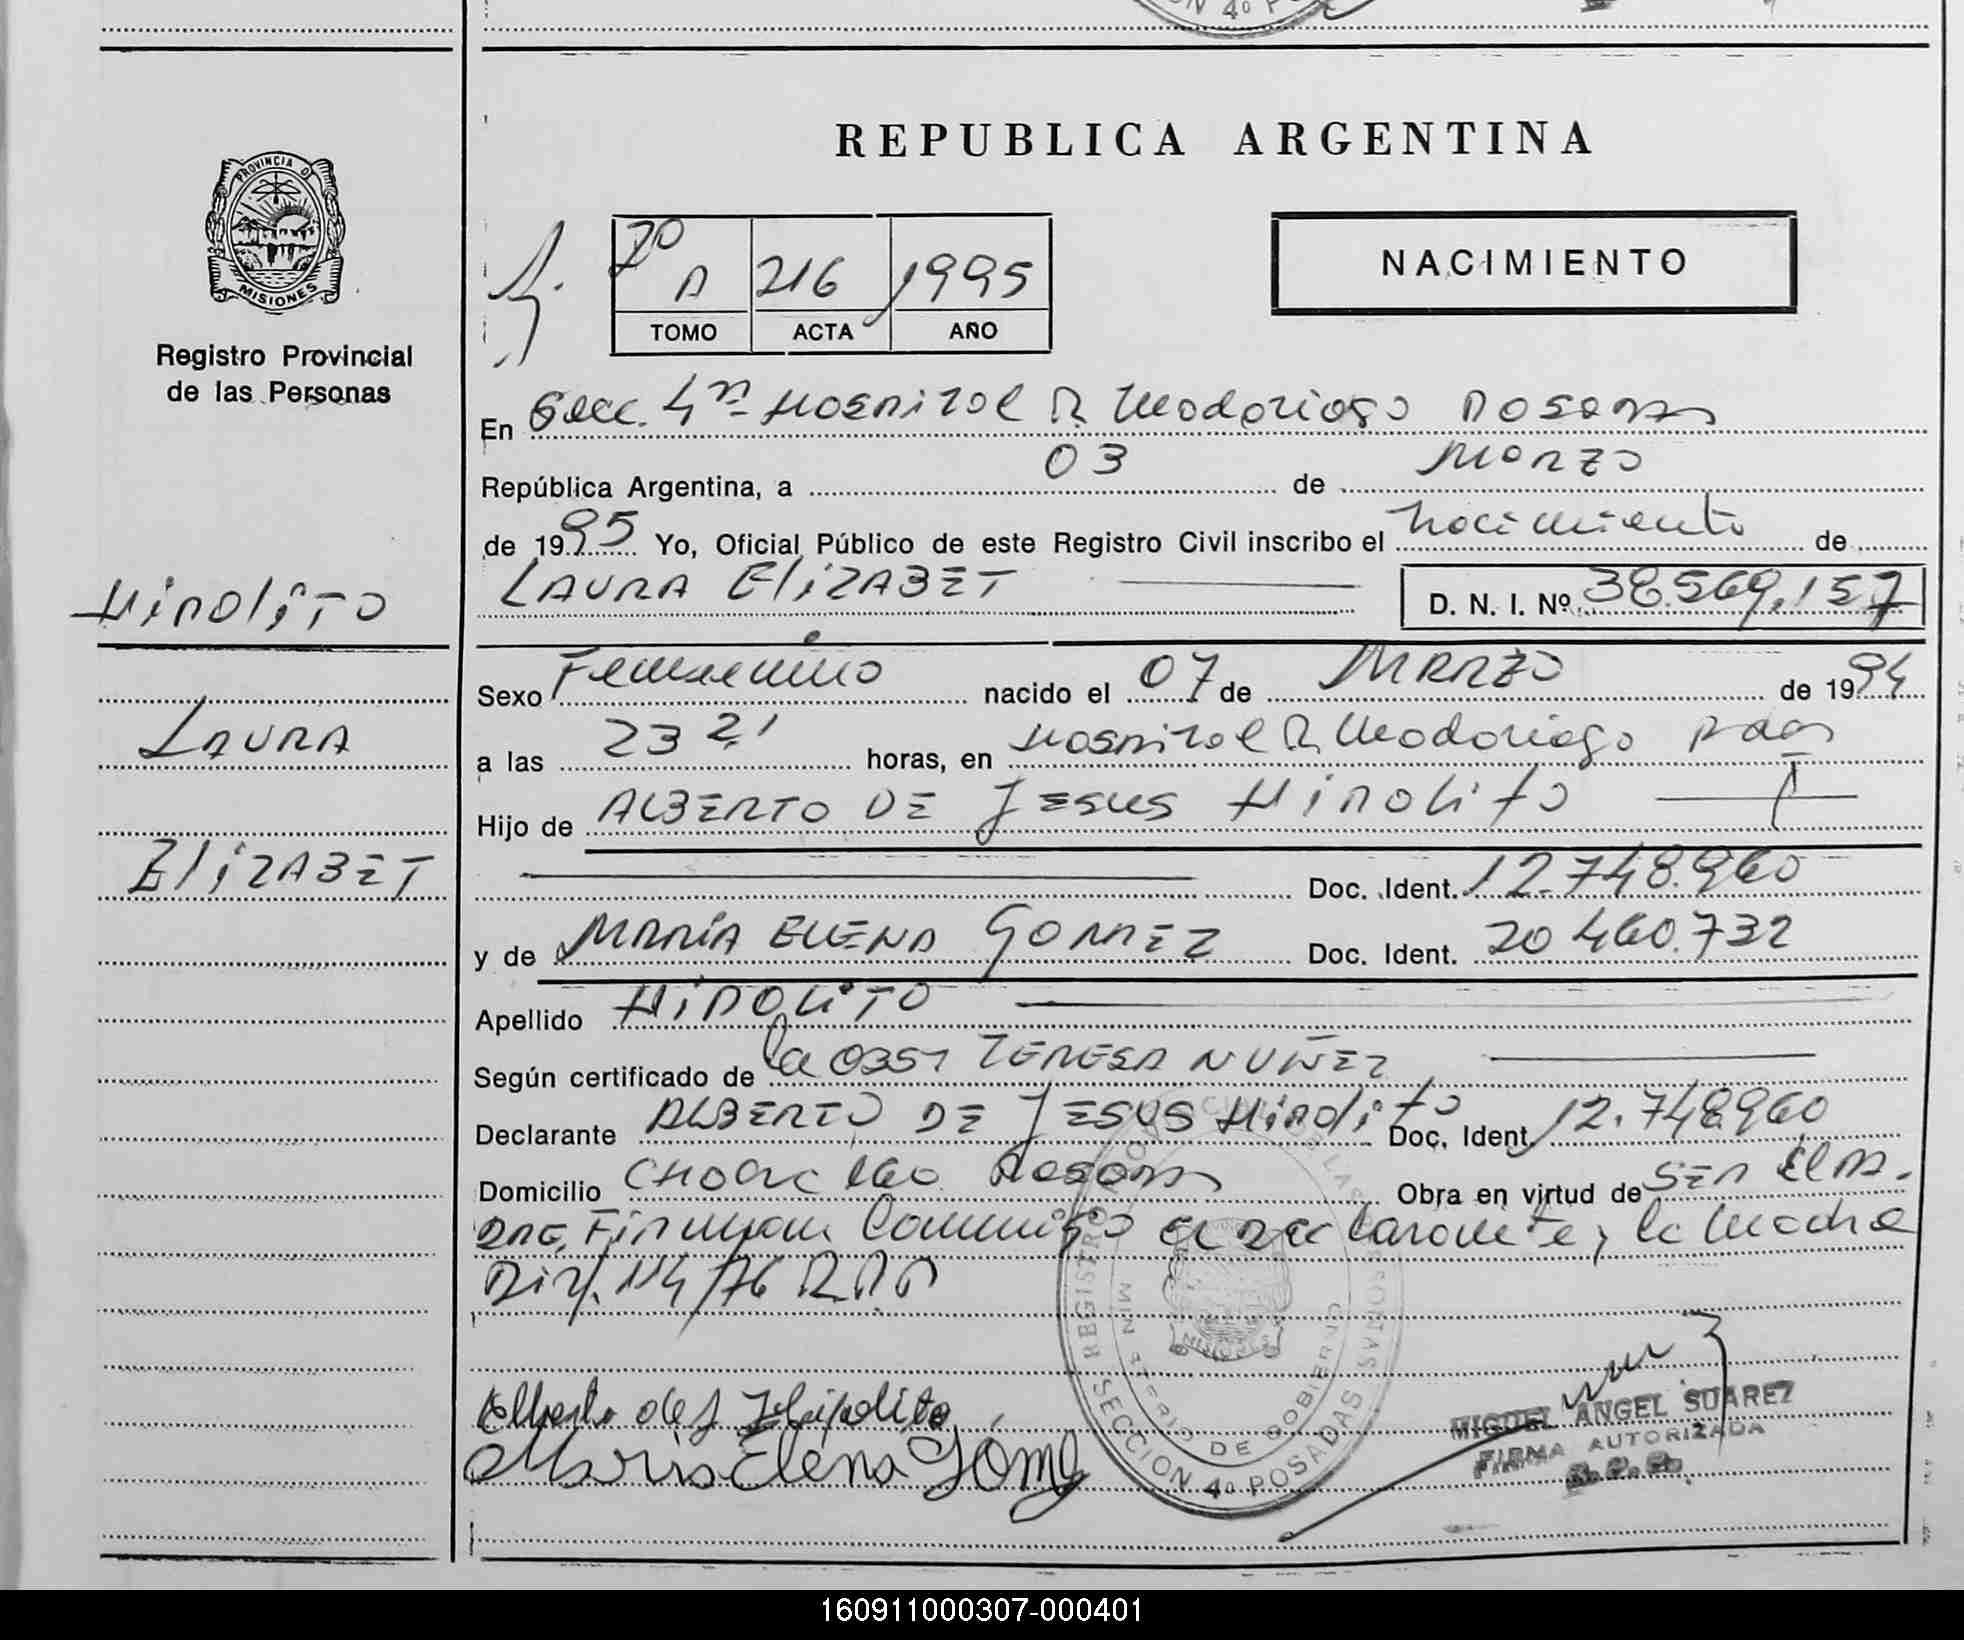 N 4º P
REPUBLICA ARGENTINA
PROVINCIA D
MISIONES
Registro Provincial
de las Personas
NACIMIENTO
7º A 216 1995
TOMO ACTA AÑO
En Secc. 4ª Hospital R. Madariaga Posadas
República Argentina, a 03 de Marzo
de 1995 Yo, Oficial Público de este Registro Civil inscribo el nacimiento de
LAURA ELIZABET D. N. I. Nº 38.569.157
HIPOLITO
LAURA
ELIZABET
Sexo Femenino nacido el 07 de MARZO de 1994
a las 23 21 horas, en Hospital R. Madariaga Pdas
Hijo de ALBERTO DE JESUS HIPOLITO
Doc. Ident. 12.748.960
y de MARÍA ELENA GOMEZ Doc. Ident. 20.460.732
Apellido HIPOLITO
Según certificado de la OBST TERESA NUÑEZ
Declarante ALBERTO DE JESUS Hipolito Doc. Ident. 12.748.960
Domicilio Posadas Obra en virtud de SER EL PA.
DRE, Firman Conmigo el declarante y la Madre
Disp. 114/76 R.P.P
Alberto de J Hipolito
Maria Elena Gomez
REGISTRO PROVINCIAL DE LAS PERSONAS
MINISTERIO DE GOBIERNO
MISIONES
SECCION 4ª POSADAS
MIGUEL ANGEL SUAREZ
FIRMA AUTORIZADA
R.P.P.
160911000307-000401